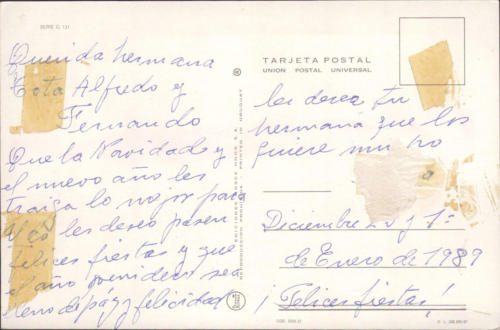 SERIE C. 131
Querida hermana
Tota Alfredo y
Fernando
Que la Navidad y
el nuevo año les
traiga lo mejor para
les deseo pasen
felices fiestas y que
el año venidero sea
lleno de paz y felicidad
TARJETA POSTAL
UNION POSTAL UNIVERSAL
les desea tu
hermana que los
quiere mucho
Diciembre y 1º
de Enero de 1989
¡Felices fiestas!
REPRODUCCION PROHIBIDA PRINTED IN URUGUAY